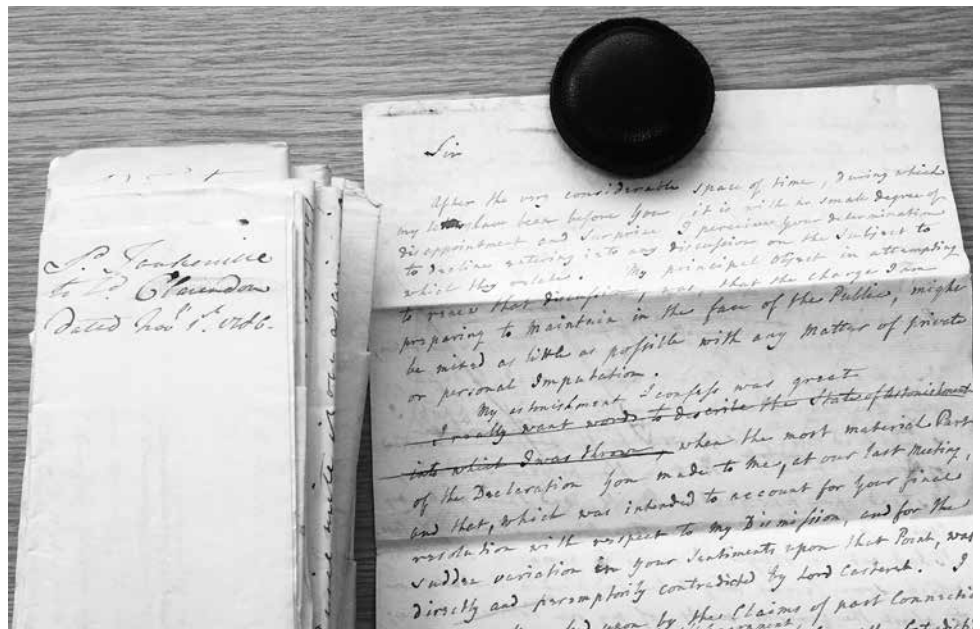 Ld. Tankerville
to Ld. Clarendon
Dated Novr. 1st. 1786.
Sir
After the very considerable space of time, during which
my letters have been before you, it is with no small degree of
disappointment and Surprize I perceive your determination
to decline entering into any discussion on the Subject to
which they relate. My principal Object in attempting
to renew that discussion, was, that the charge I am
preparing to maintain in the face of the Public, might
be mixed as little as possible with any Matter of private
or personal Imputation.
My astonishment I confess was great
I really want words to describe the State of Astonishment
into which I was thrown, when the most material Part
of the Declaration you made to me, at our last Meeting,
and that, which was intended to account for your final
resolution with respect to my Dismission, and for the
sudden variation in your Sentiments upon that Point, was
directly and peremptorily contradicted by Lord Carteret. I
upon by the Claims of past Connection